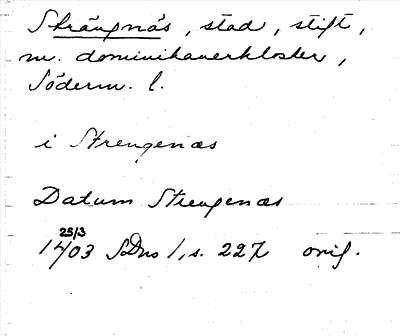 Strängnäs, stad, stift,
m. dominikanerkloster,
Söderm. l.
i Strengenæs
Datum Strengenæs
25/3
1403 SDns 1, s. 227 orig.